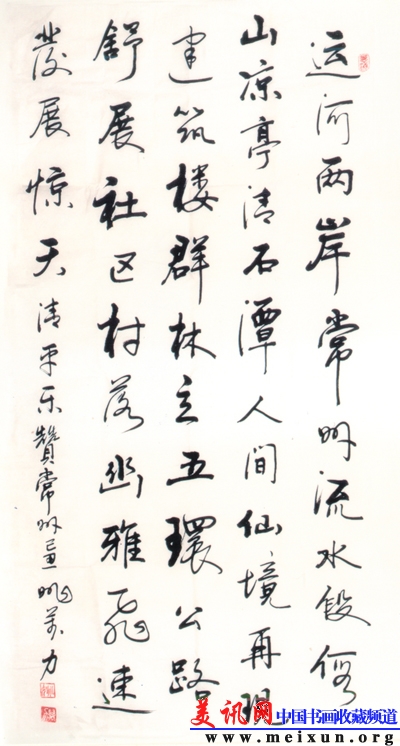 运河两岸常州流水段假
山凉亭清石潭人间仙境再现
建筑楼群林立五環公路
舒展社区村落幽雅飞速
發展惊天
清平乐贊常州 姚萬力
美讯网 中国书画收藏频道
www.meixun.org